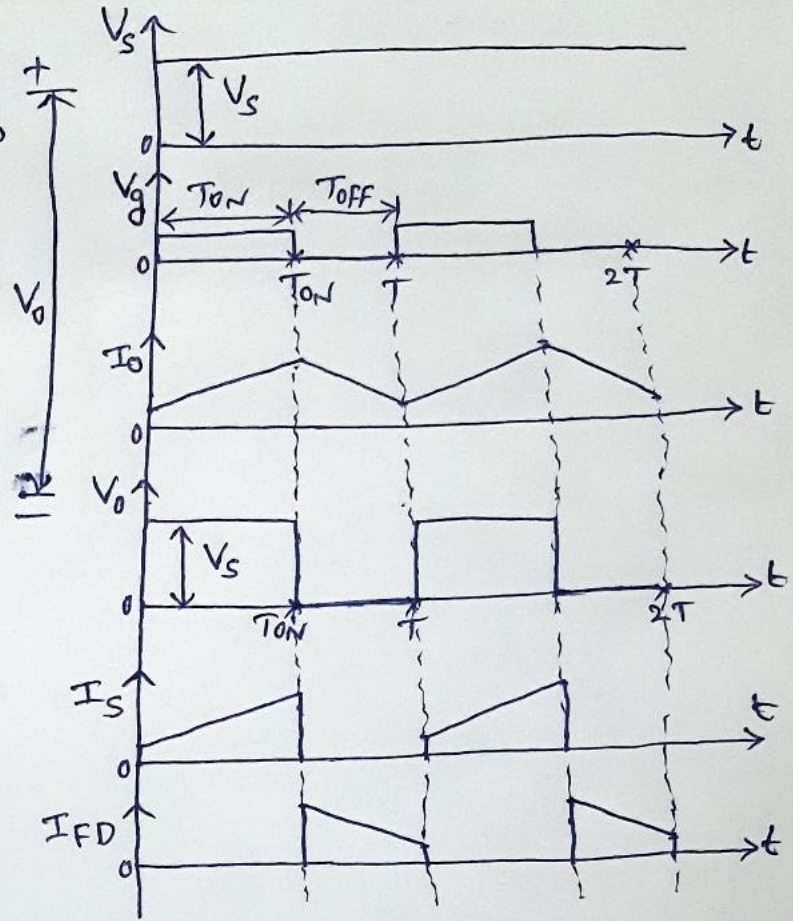 V_S
+
V_S
0
t
V_g
T_ON
T_OFF
0
T_ON
T
2T
t
V_0
I_0
0
t
V_0
V_S
0
T_ON
T
2T
t
I_S
0
t
I_FD
0
t